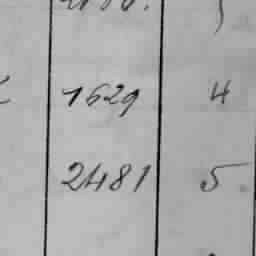 1629 4
2481 5.